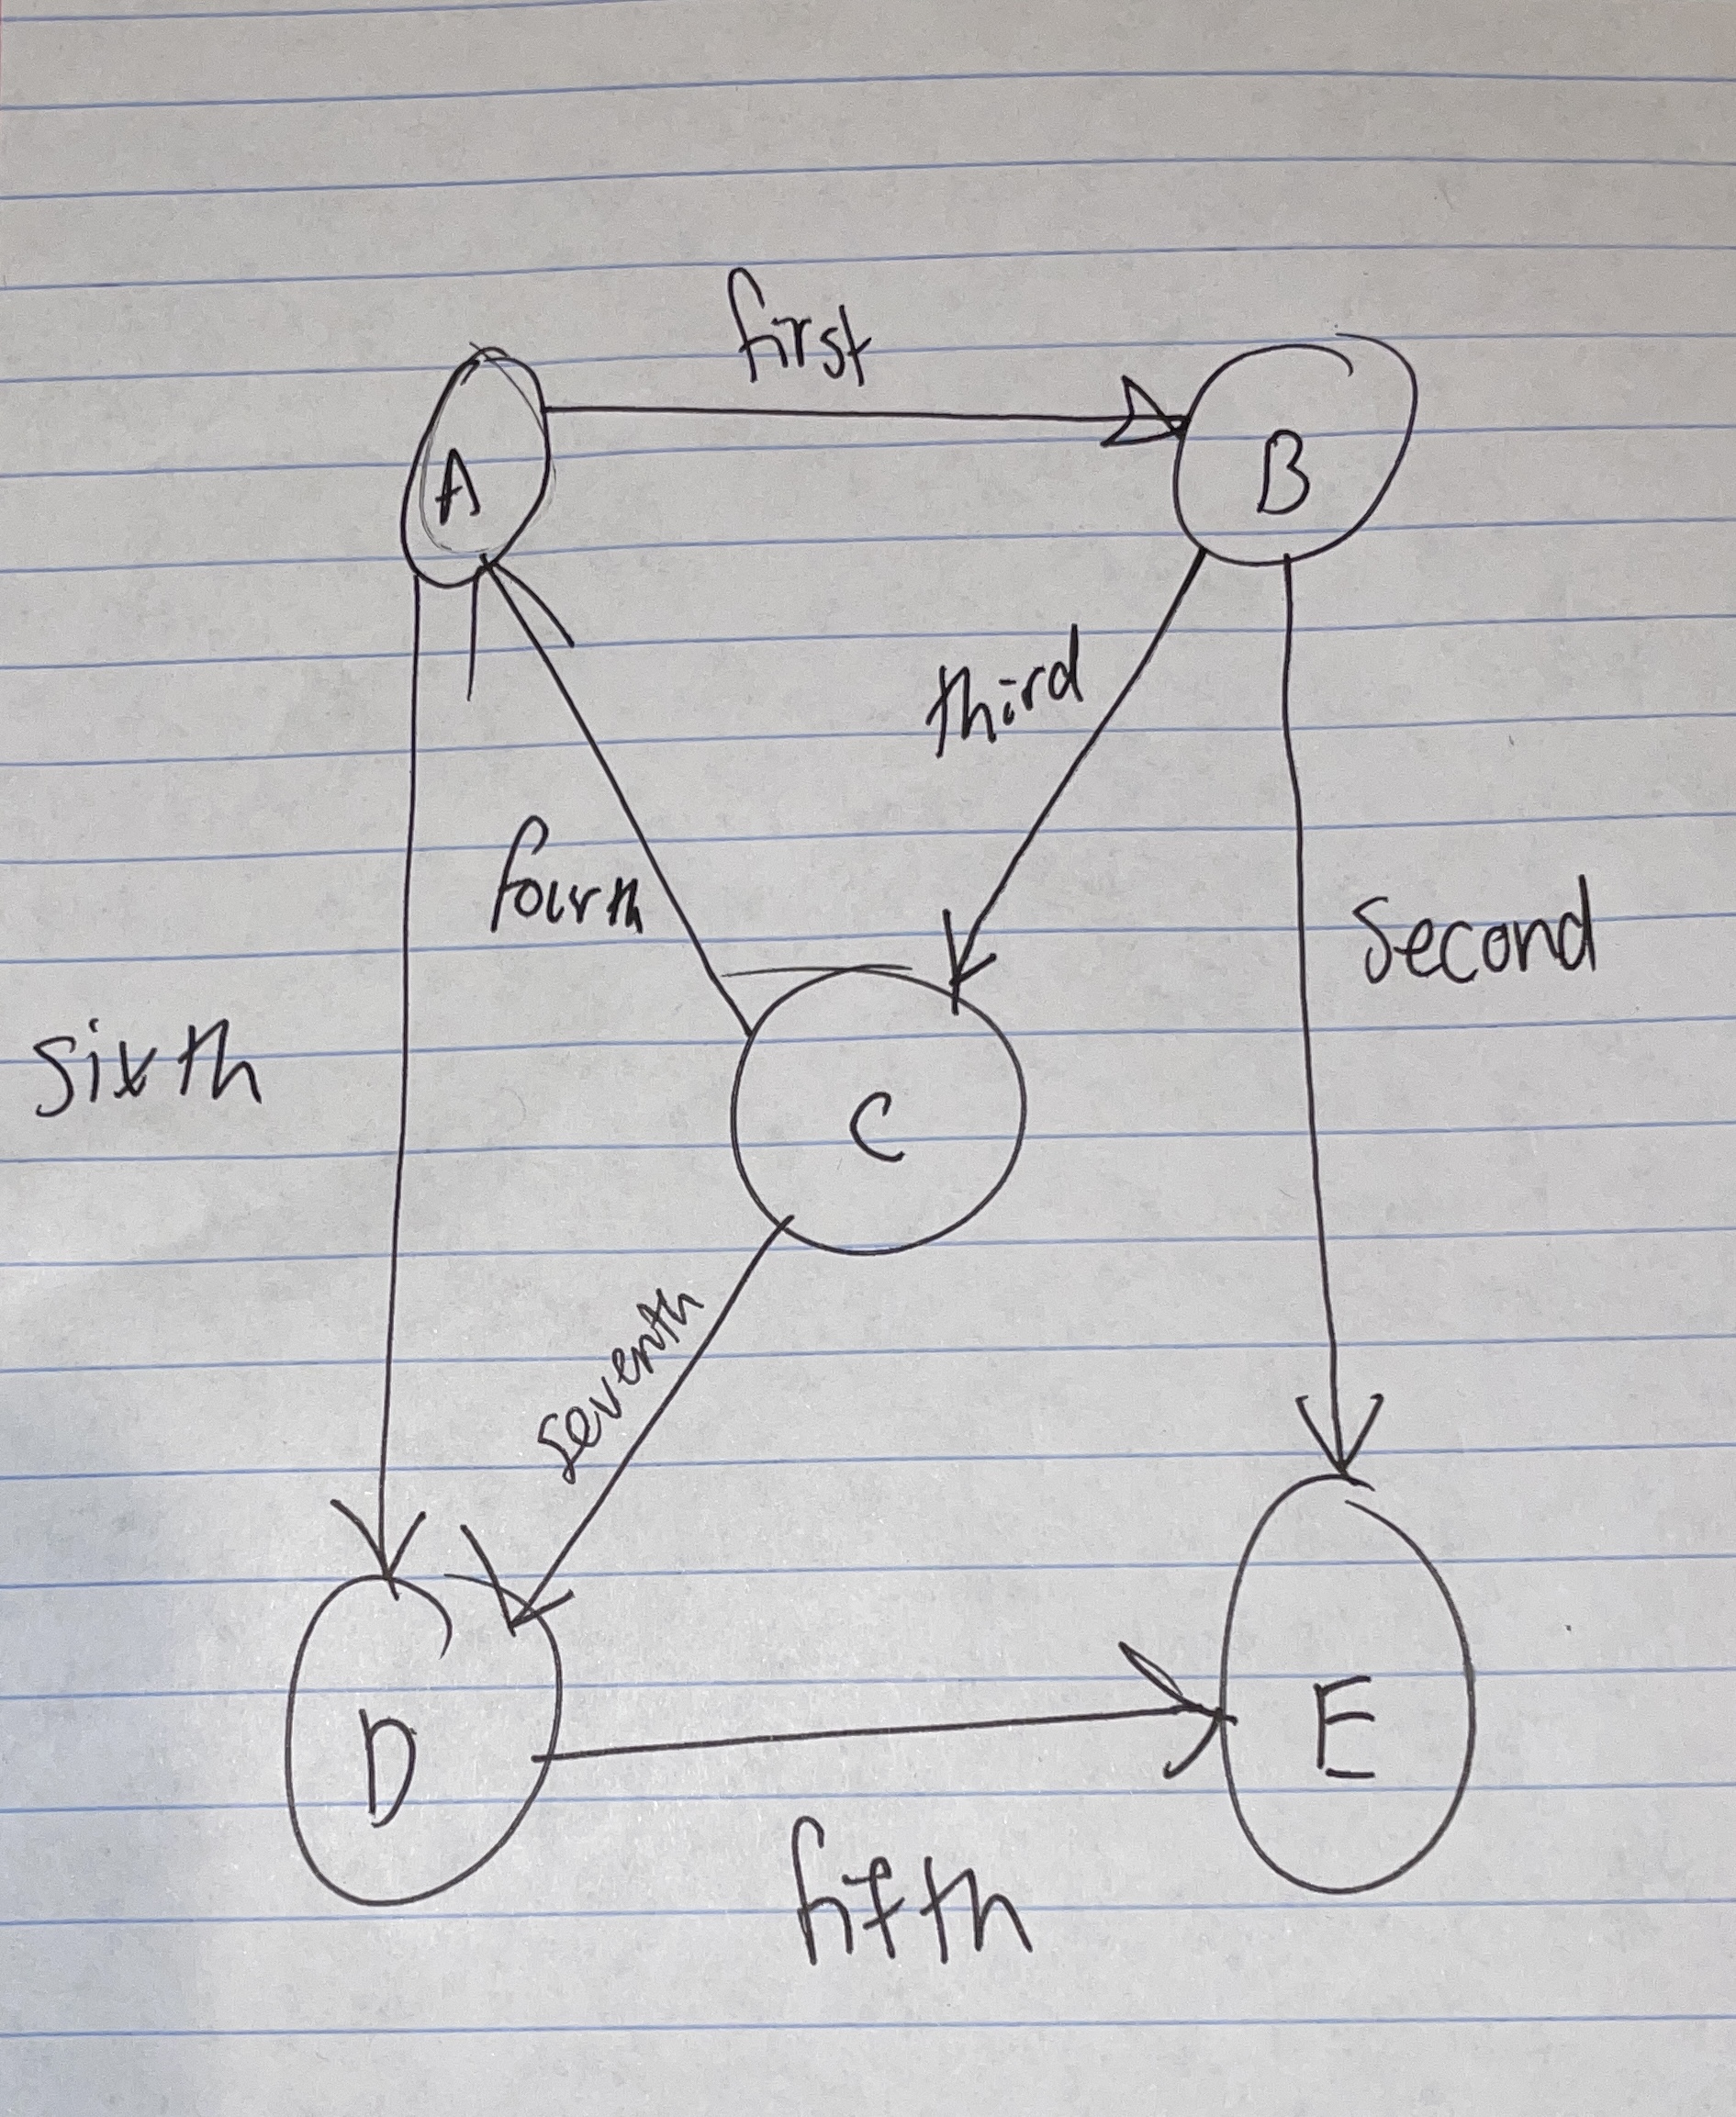 first
A
B
third
fourth
second
sixth
C
seventh
D
E
fifth